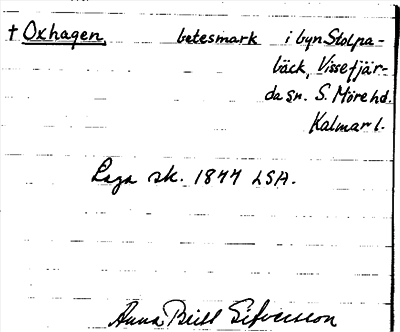 † Oxhagen betesmark i byn Stolpa-
bäck, Vissefjär-
da sn. S. Möre hd.
Kalmar l.
Laga sk. 1877 LSA.
Anna Britt Sifversson